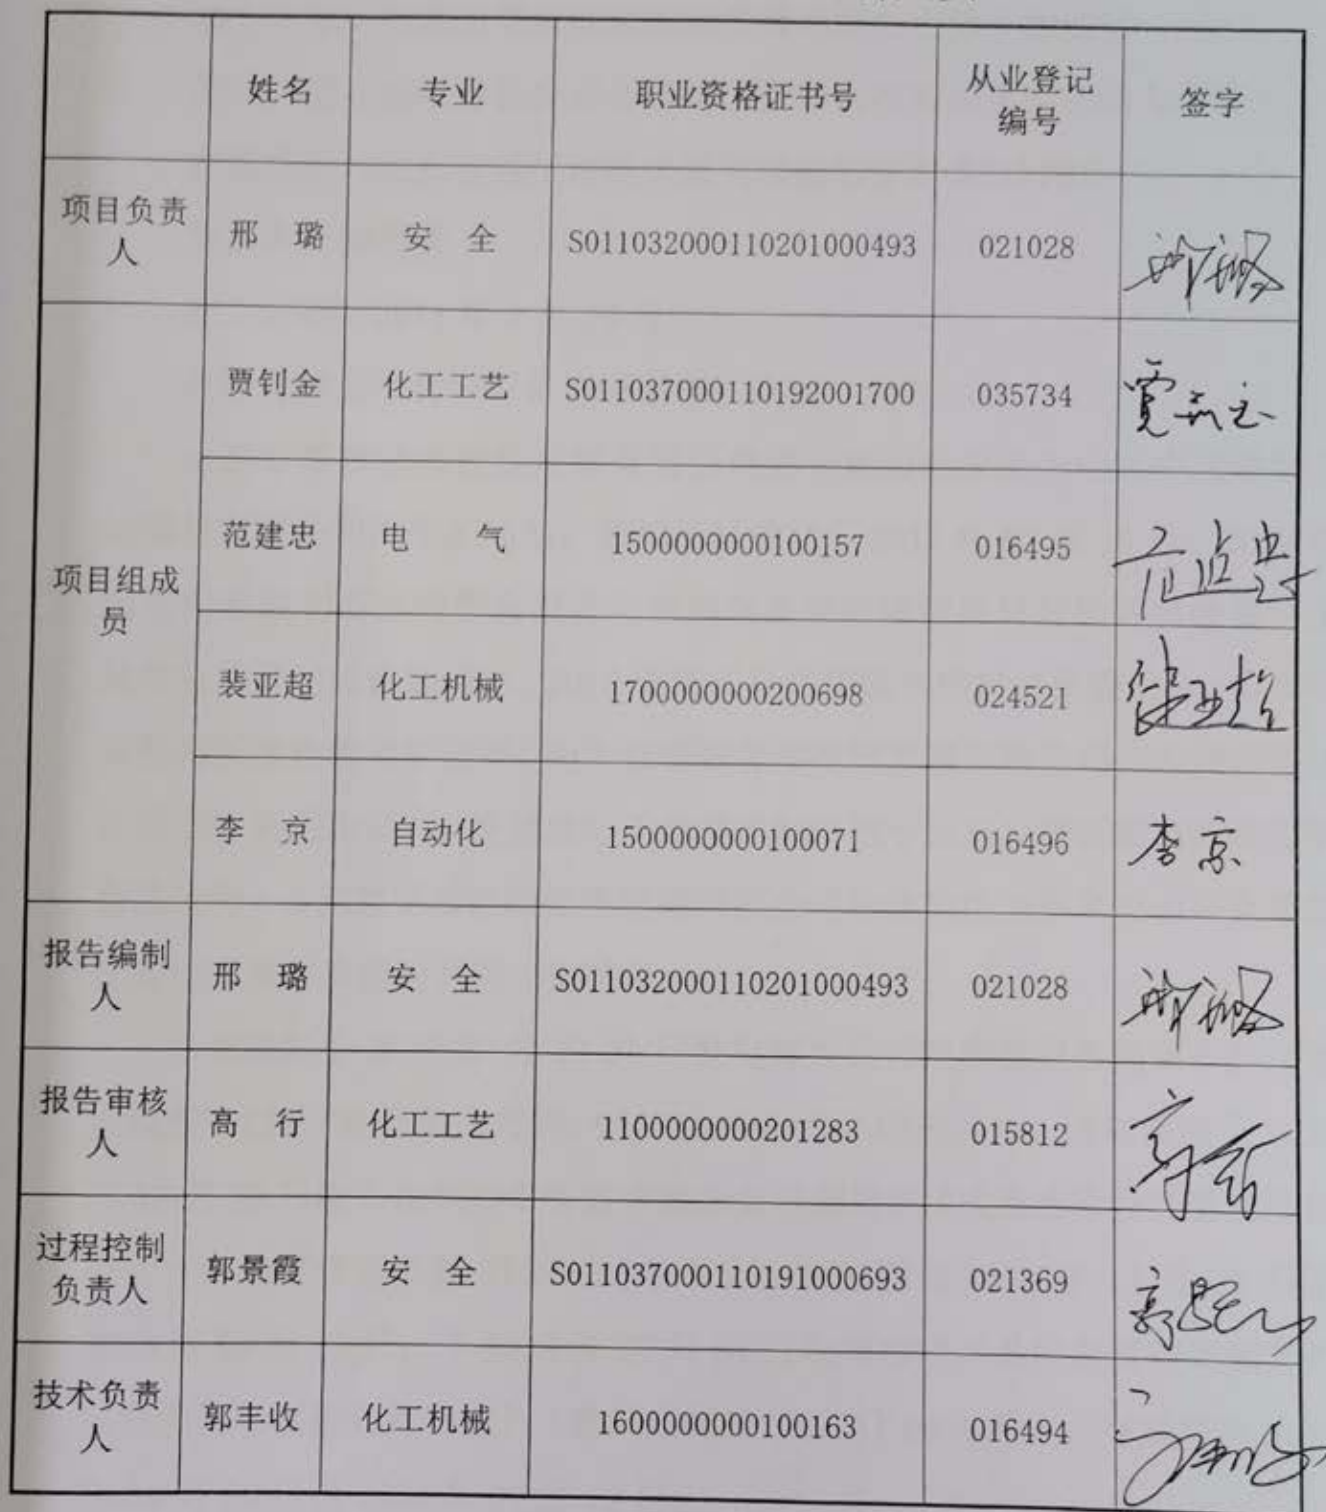 姓名 专业 职业资格证书号 从业登记
编号 签字
项目负责
人 邢 璐 安 全 S011032000110201000493 021028 邢璐
项目组成
员
贾钊金 化工工艺 S011037000110192001700 035734
范建忠 电 气 1500000000100157 016495 范建忠
裴亚超 化工机械 1700000000200698 024521 裴亚超
李 京 自动化 1500000000100071 016496 李京
报告编制
人 邢 璐 安 全 S011032000110201000493 021028 邢璐
报告审核
人 高 行 化工工艺 1100000000201283 015812 高行
过程控制
负责人 郭景霞 安 全 S011037000110191000693 021369
技术负责
人 郭丰收 化工机械 1600000000100163 016494